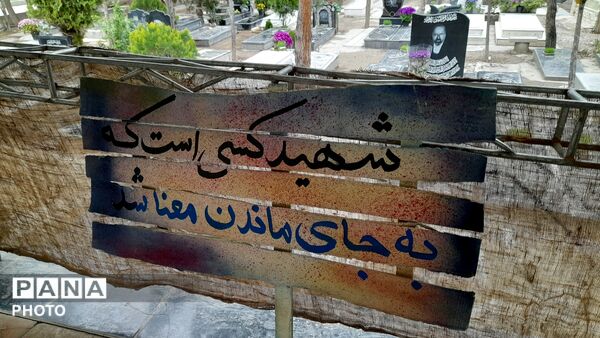 شهید کسی است که
به جای ماندن معنا شد
PANA
PHOTO